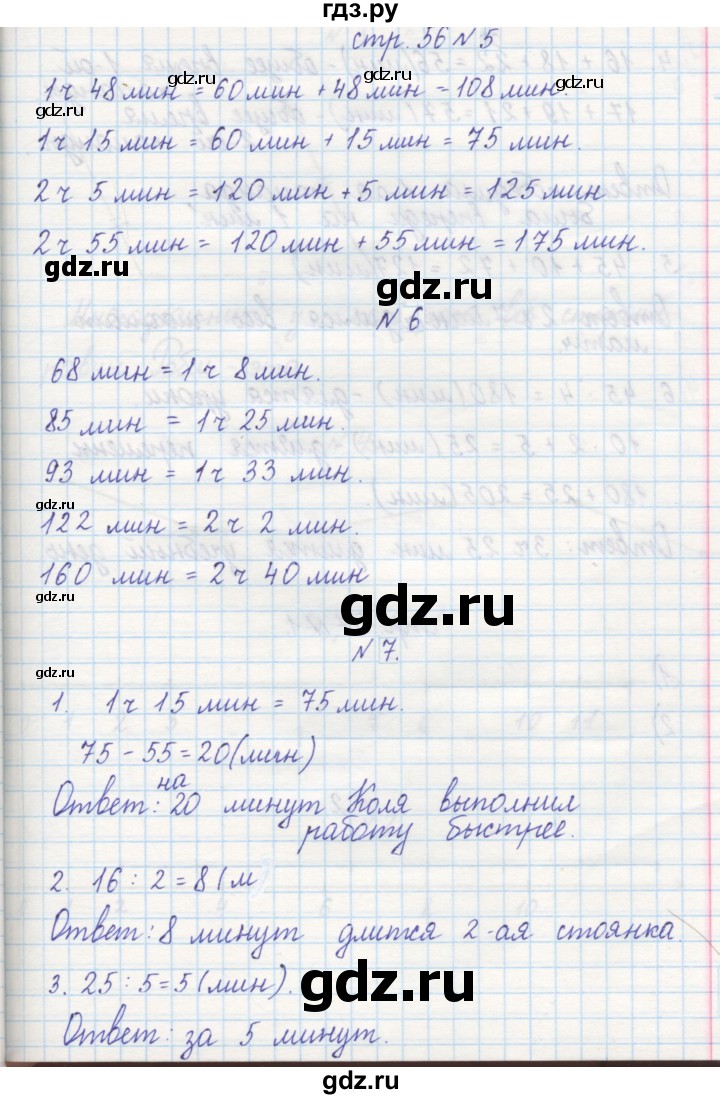 гдз.ру
стр. 56 N 5
1ч 48 мин = 60 мин + 48 мин - 108 мин.
1ч 15 мин = 60 мин + 15 мин = 75 мин.
2ч 5 мин = 120 мин + 5 мин = 125 мин
2ч 55 мин = 120 мин + 55 мин = 175 мин.
gdz.ru
gdz.ru
N 6
68 мин = 1ч 8 мин.
gdz.ru
85 мин = 1ч 25 мин.
93 мин = 1ч 33 мин.
gdz.ru
122 мин = 2ч 2 мин.
160 мин = 2ч 40 мин
gdz.ru
gdz.ru
N 7.
gdz.ru
1. 1ч 15 мин = 75 мин.
75 - 55 = 20 (мин)
Ответ: на 20 минут Коля выполнил
работу быстрее.
2. 16 : 2 = 8 (м
Ответ: 8 минут длится 2-ая стоянка.
3. 25 : 5 = 5 (мин).
gdz.ru
Ответ: за 5 минут.
gdz.ru